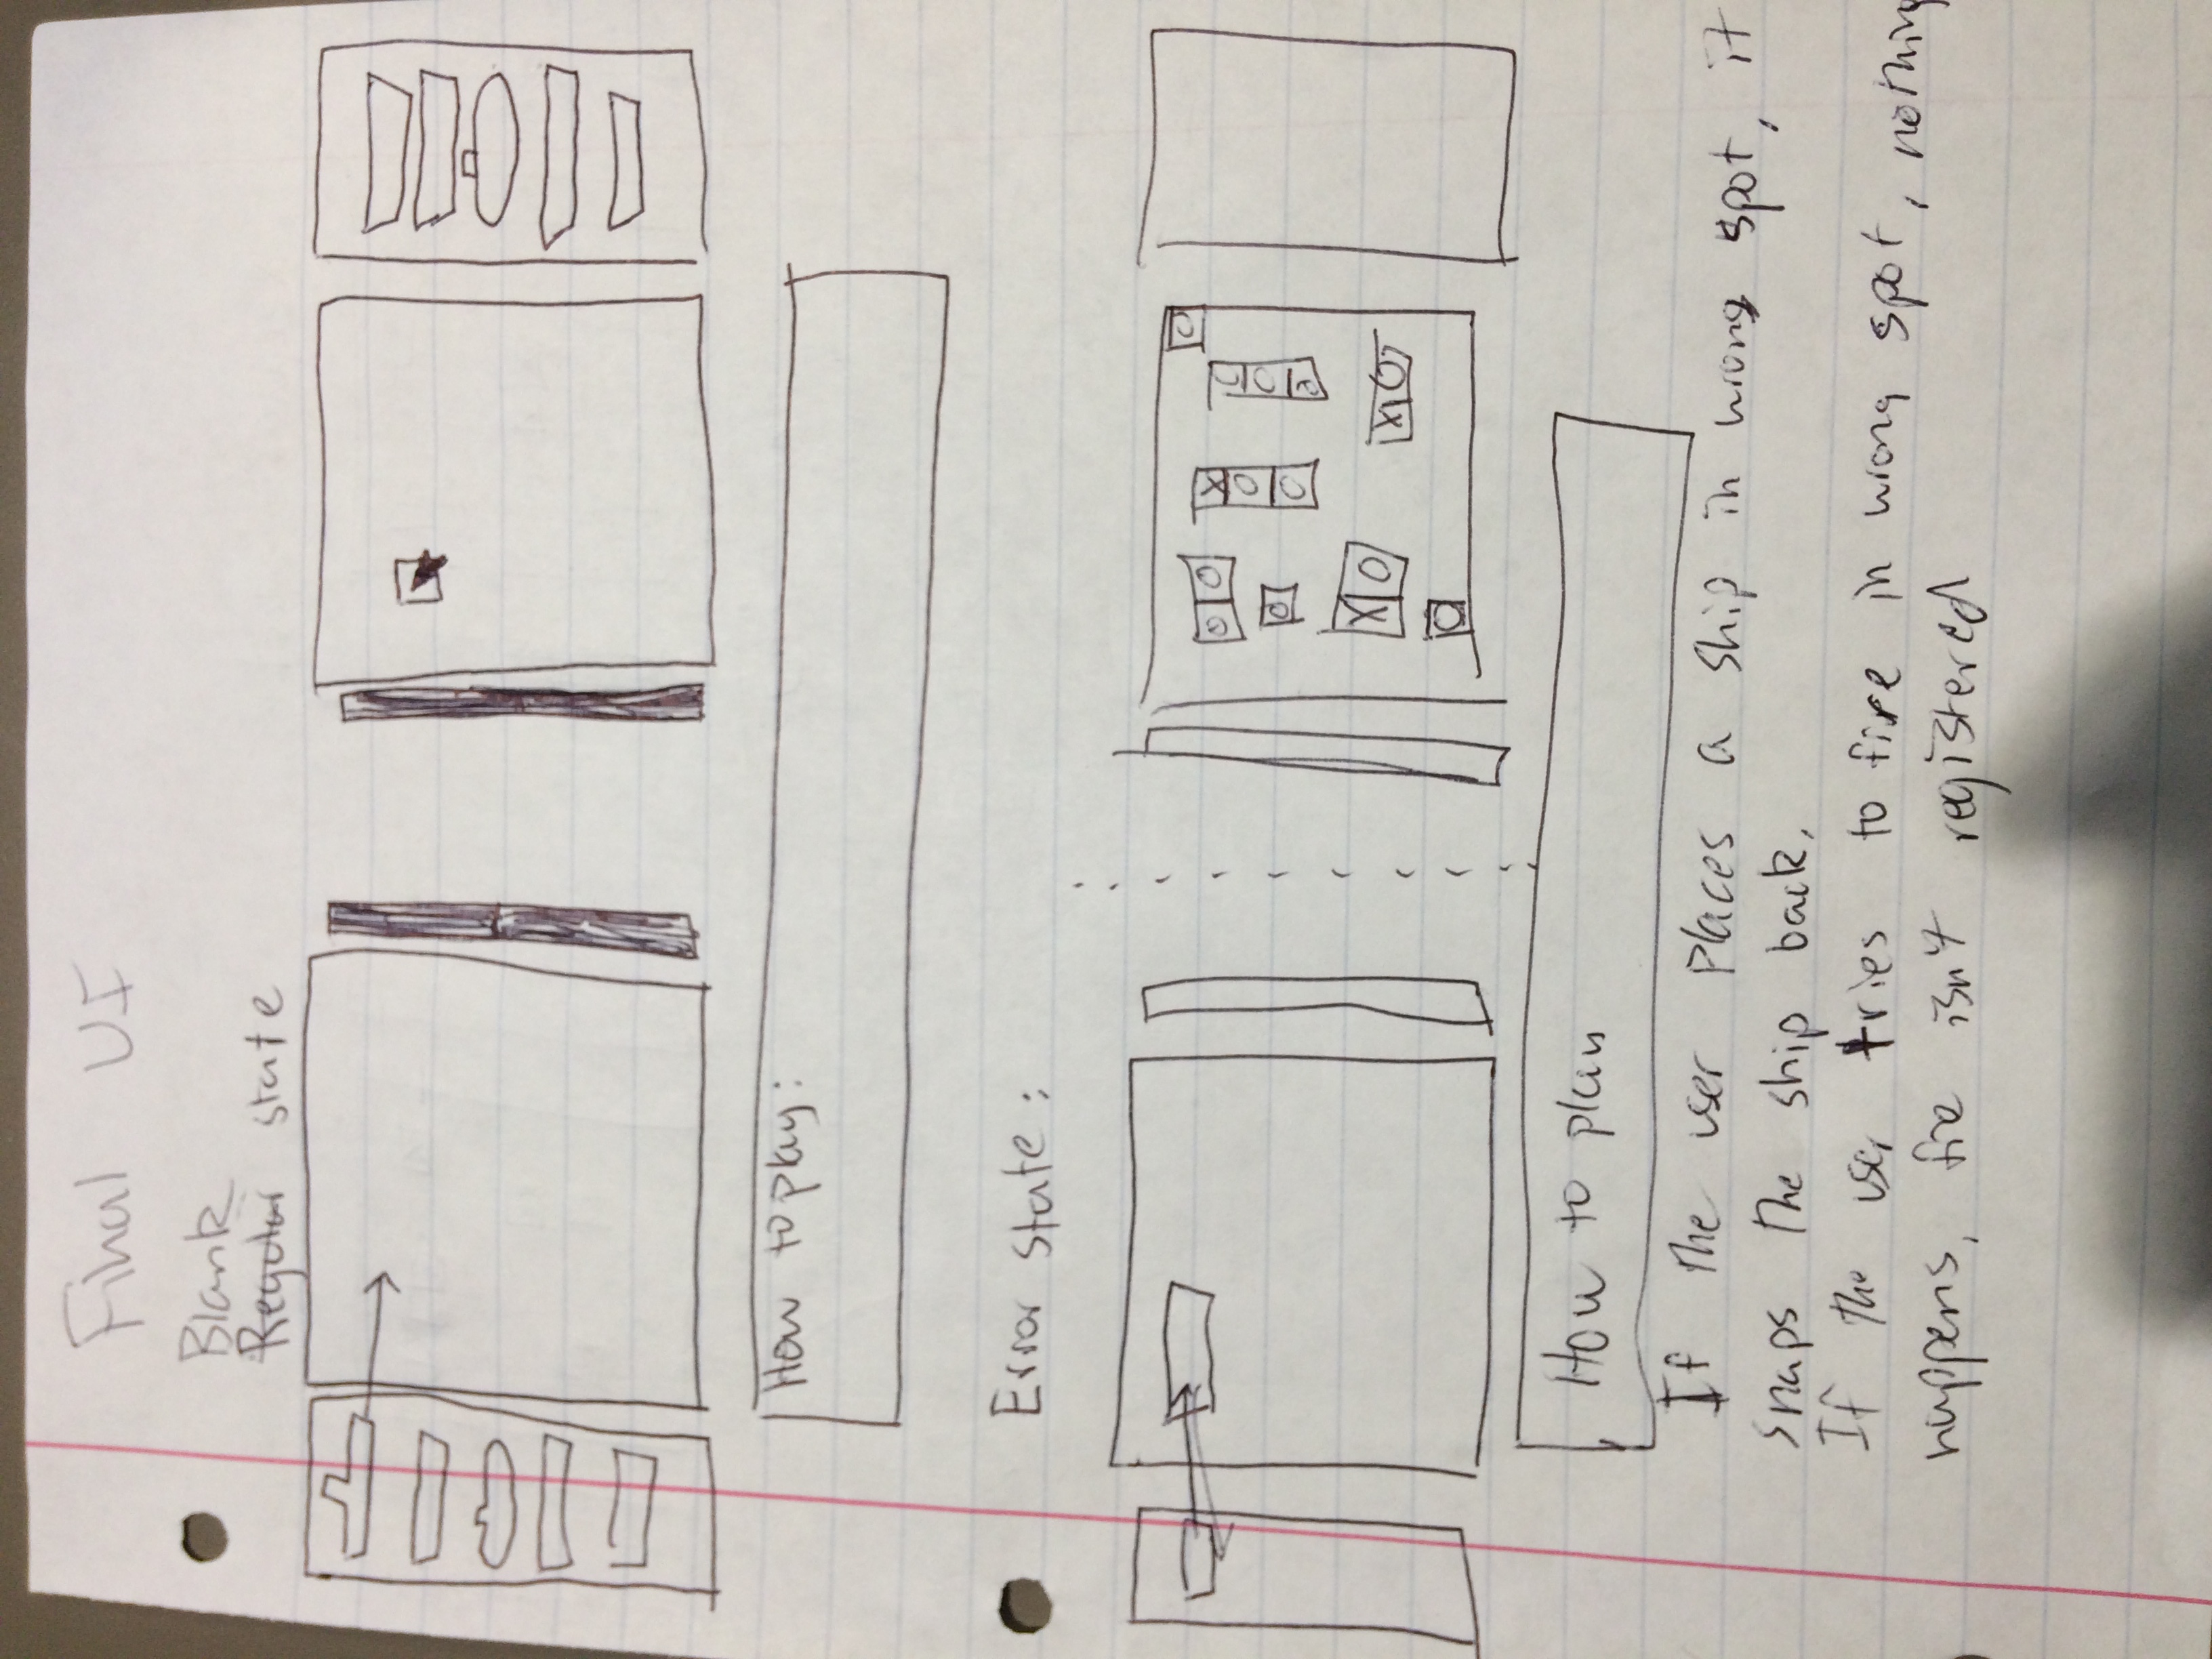 Final UI
Blank
Regular state
How to play:
Error state:
O O X O O O O
O O O
X O X O
O
How to plan
If the user places a ship in wrong spot, it
snaps the ship back.
If the user tries to fire in wrong spot, nothing
happens, fire isn't registered